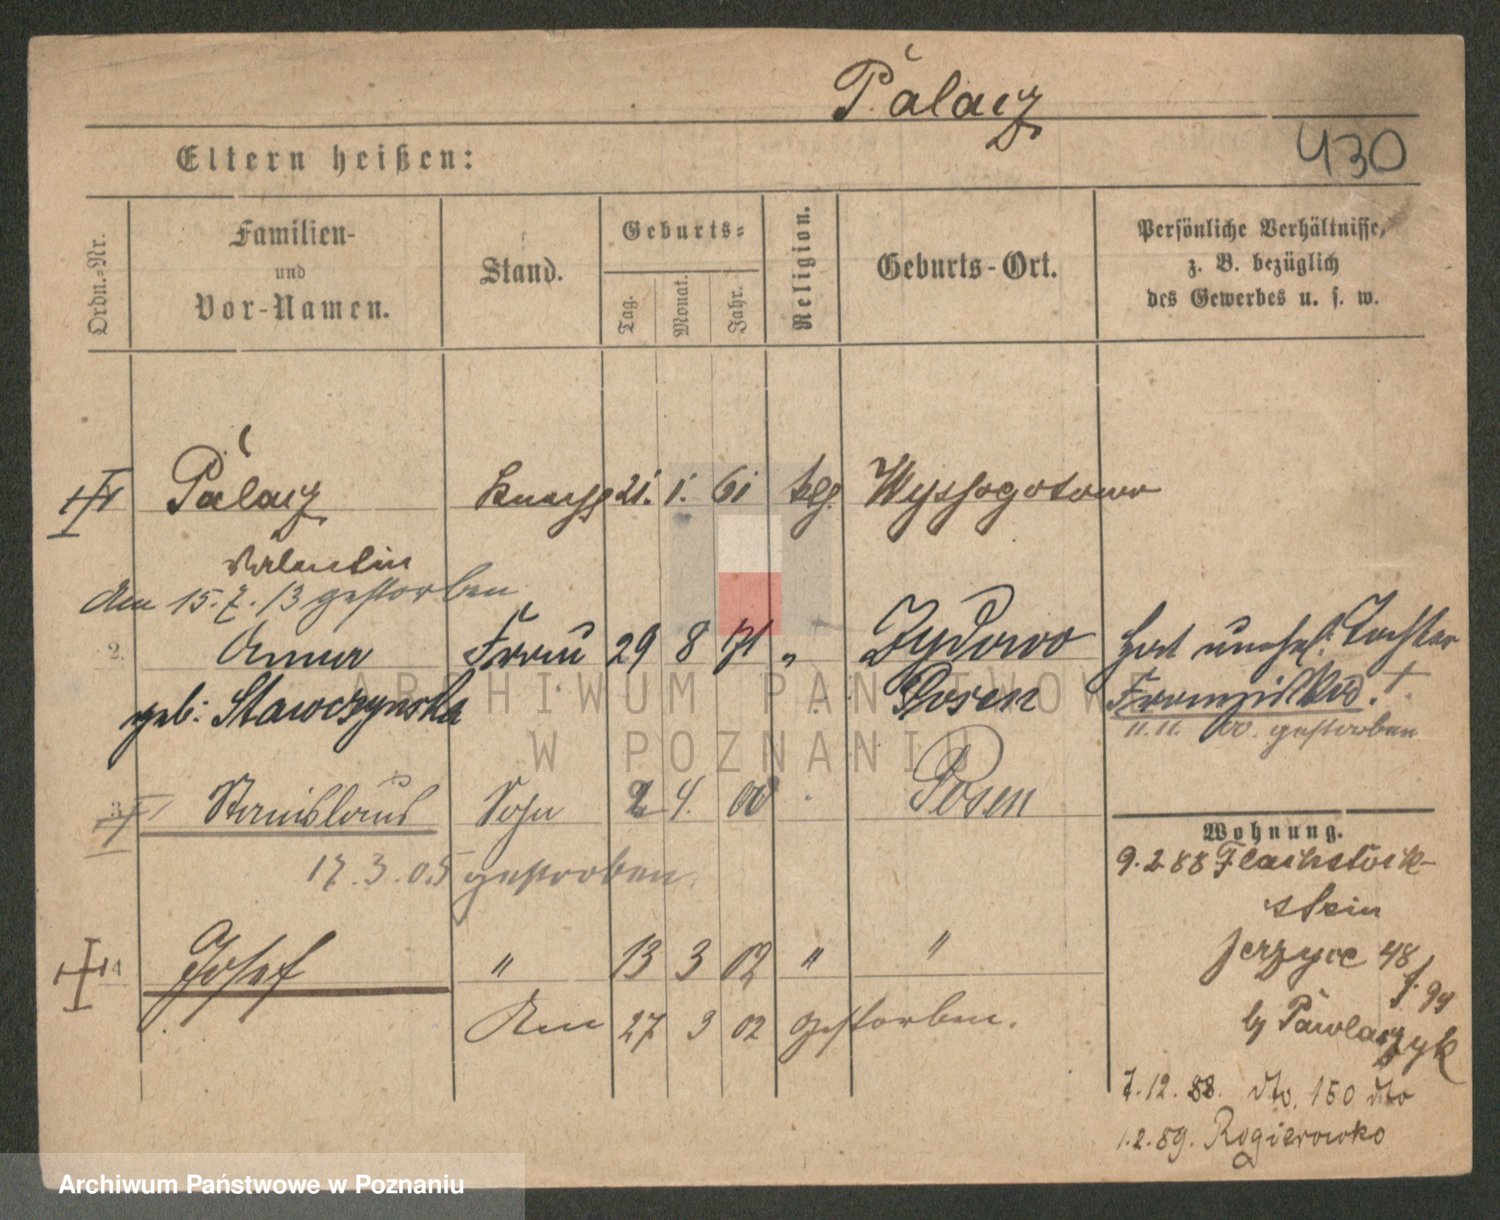 Pálacz
430
Eltern heißen:
Ordn.-Nr.
Familien-
und
Vor-Namen.
Stand.
Geburts-
Tag.
Monat.
Jahr.
Religion.
Geburts-Ort.
Persönliche Verhältnisse,
z. B. bezüglich
des Gewerbes u. s. w.
Pálacz 21. 1. 61 Wyssogotowo
Valentin
Am 15.7.13 gestorben
2. Anna Frau 29 8 71 " Zydowo hat unehel. Tochter
geb: Stawczynska Posen Franziska. †
11.11. 00. gestorben
3 Stanislaus Sohn 2 4. 00 Posen
17.3.05 gestorben.
Wohnung.
9.2.88 Flachstöck-
stein
Josef " 13 3 02 " "
Jerzyce 48
Am 27 3 02 gestorben.
b/ Pawlaczyk
7.12.88. dto. 150 dto
1.2.89. Rogierowko
ARCHIWUM PAŃSTWOWE
W POZNANIU
Archiwum Państwowe w Poznaniu